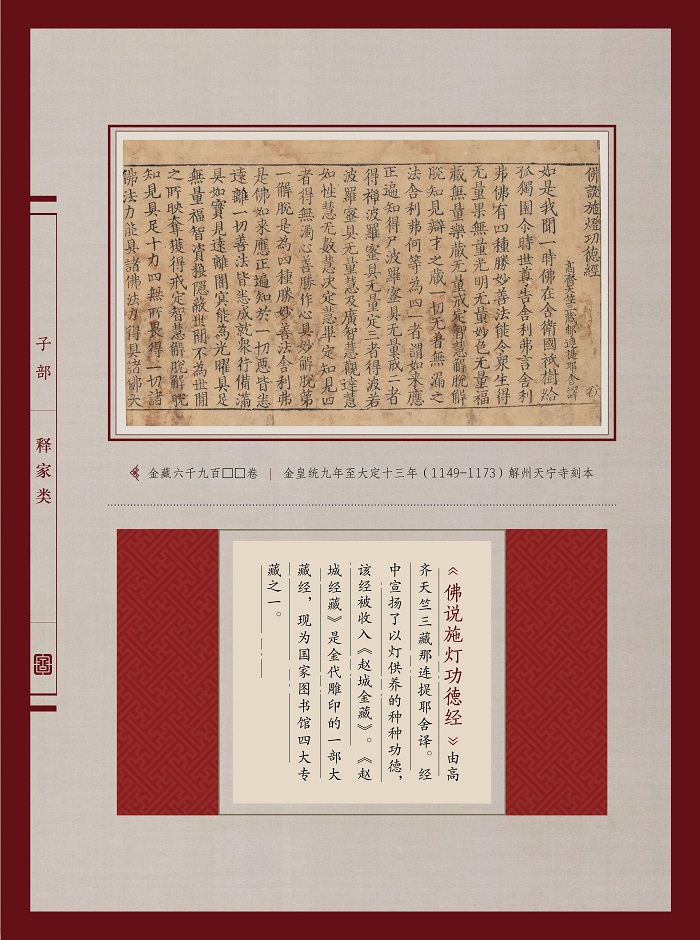 佛說施燈功徳經
高齊天竺三藏那連提耶舍譯
如是我聞一時佛在舍衛國祇樹給
孤獨園尒時世尊告舍利弗言舍利
弗佛有四種勝妙善法能令衆生得
无量果無量光明无量妙色无量福
藏無量樂藏无量戒定智慧解脫解
脫知見辯才之藏一切无㝵無漏之
法舍利弗何等為四一者謂如来應
正遍知得尸波羅蜜具无量戒二者
得禪波羅蜜具无量定三者得波若
波羅蜜具无量慧及廣智慧觀達慧
如性慧无數慧决定慧畢定知見四
者得無濁心善勝作心具妙解脫第
一解脫是為四種勝妙善法舍利弗
是佛如来應正遍知於一切惡皆悉
遠離一切善法皆悉成就衆行備滿
具如實見遠離闇冥能為光曜具足
無量福智資粮隱蔽世間不為世間
之所映奪獲得戒定智慧解脫解脫
知見具足十力四無所畏得一切諸
佛法力能具諸佛法力得具諸佛大
子部
释家类
金藏六千九百□□卷 | 金皇统九年至大定十三年（1149-1173）解州天宁寺刻本
《佛说施灯功德经》由高
齐天竺三藏那连提耶舍译。经
中宣扬了以灯供养的种种功德，
该经被收入《赵城金藏》。《赵
城经藏》是金代雕印的一部大
藏经，现为国家图书馆四大专
藏之一。